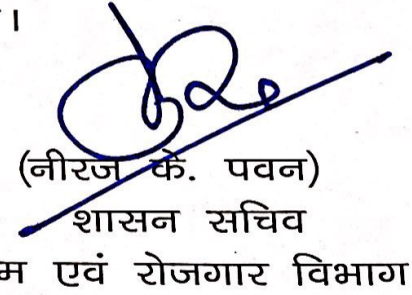 ।
(नीरज के. पवन)
शासन सचिव
एवं रोजगार विभाग